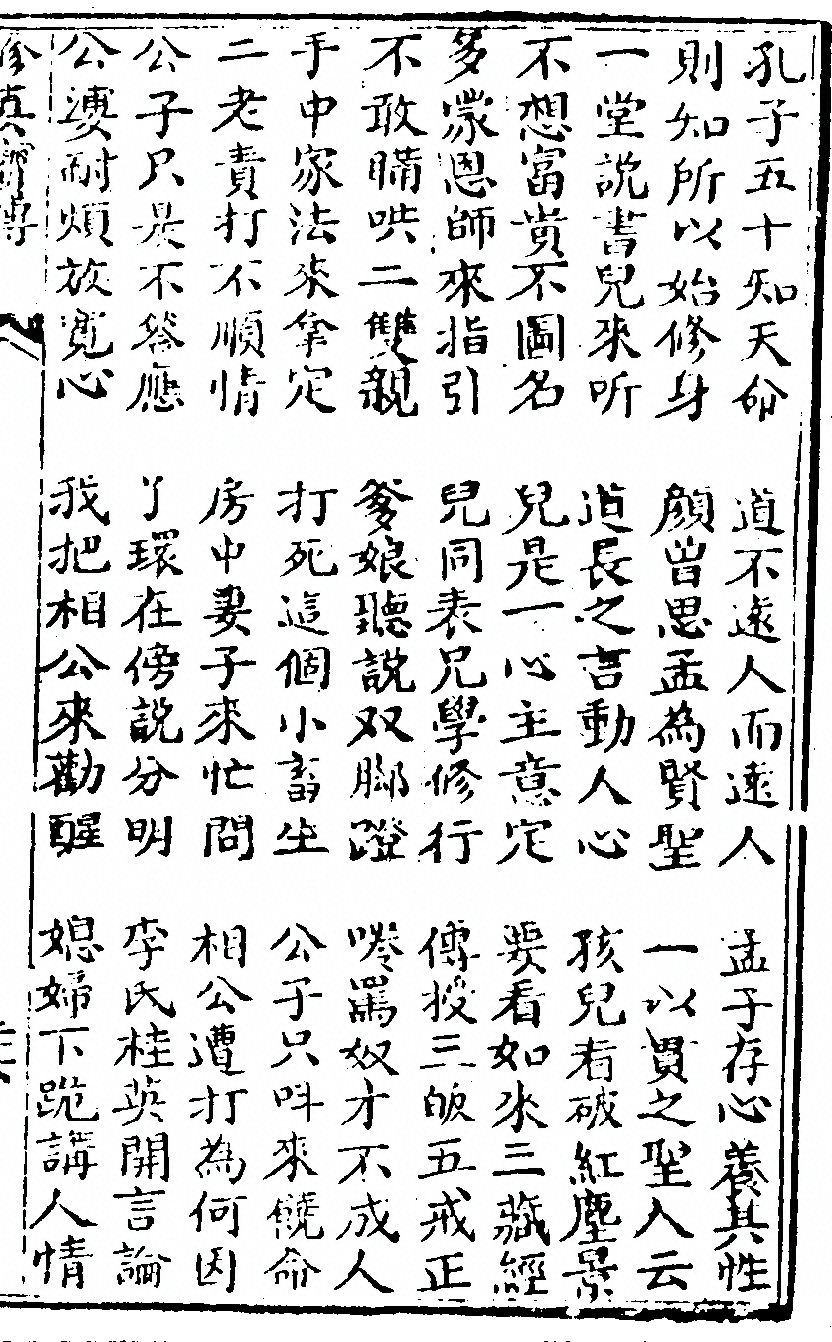 孔子五十知天命　道不遠人而遠人　孟子存心養其性
則知所以始修身　顏曾思孟為賢聖　一以貫之聖人云
一堂說書兒來听　道長之言動人心　孩兒看破紅塵景
不想富貴不圖名　兒是一心主意定　要看如來三藏經
多蒙恩師來指引　兒同表兄學修行　傳授三皈五戒正
不敢瞞哄二雙親　爹娘聽說双脚蹬　咾罵奴才不成人
手中家法來拿定　打死這個小畜生　公子只呌來饒命
二老責打不順情　房中妻子來忙問　相公遭打為何因
公子只是不答應　丫環在傍說分明　李氏桂英開言論
公婆耐煩放寬心　我把相公來勸醒　媳婦下跪講人情
修真寶傳